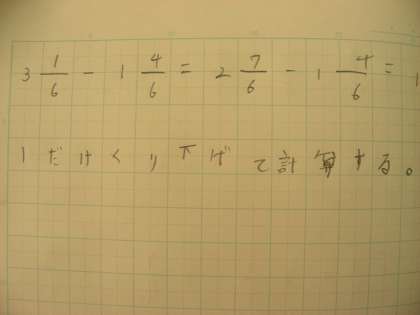 3 1/6 - 1 4/6 = 2 7/6 - 1 4/6 = 1
1だけくり下げて計算する。